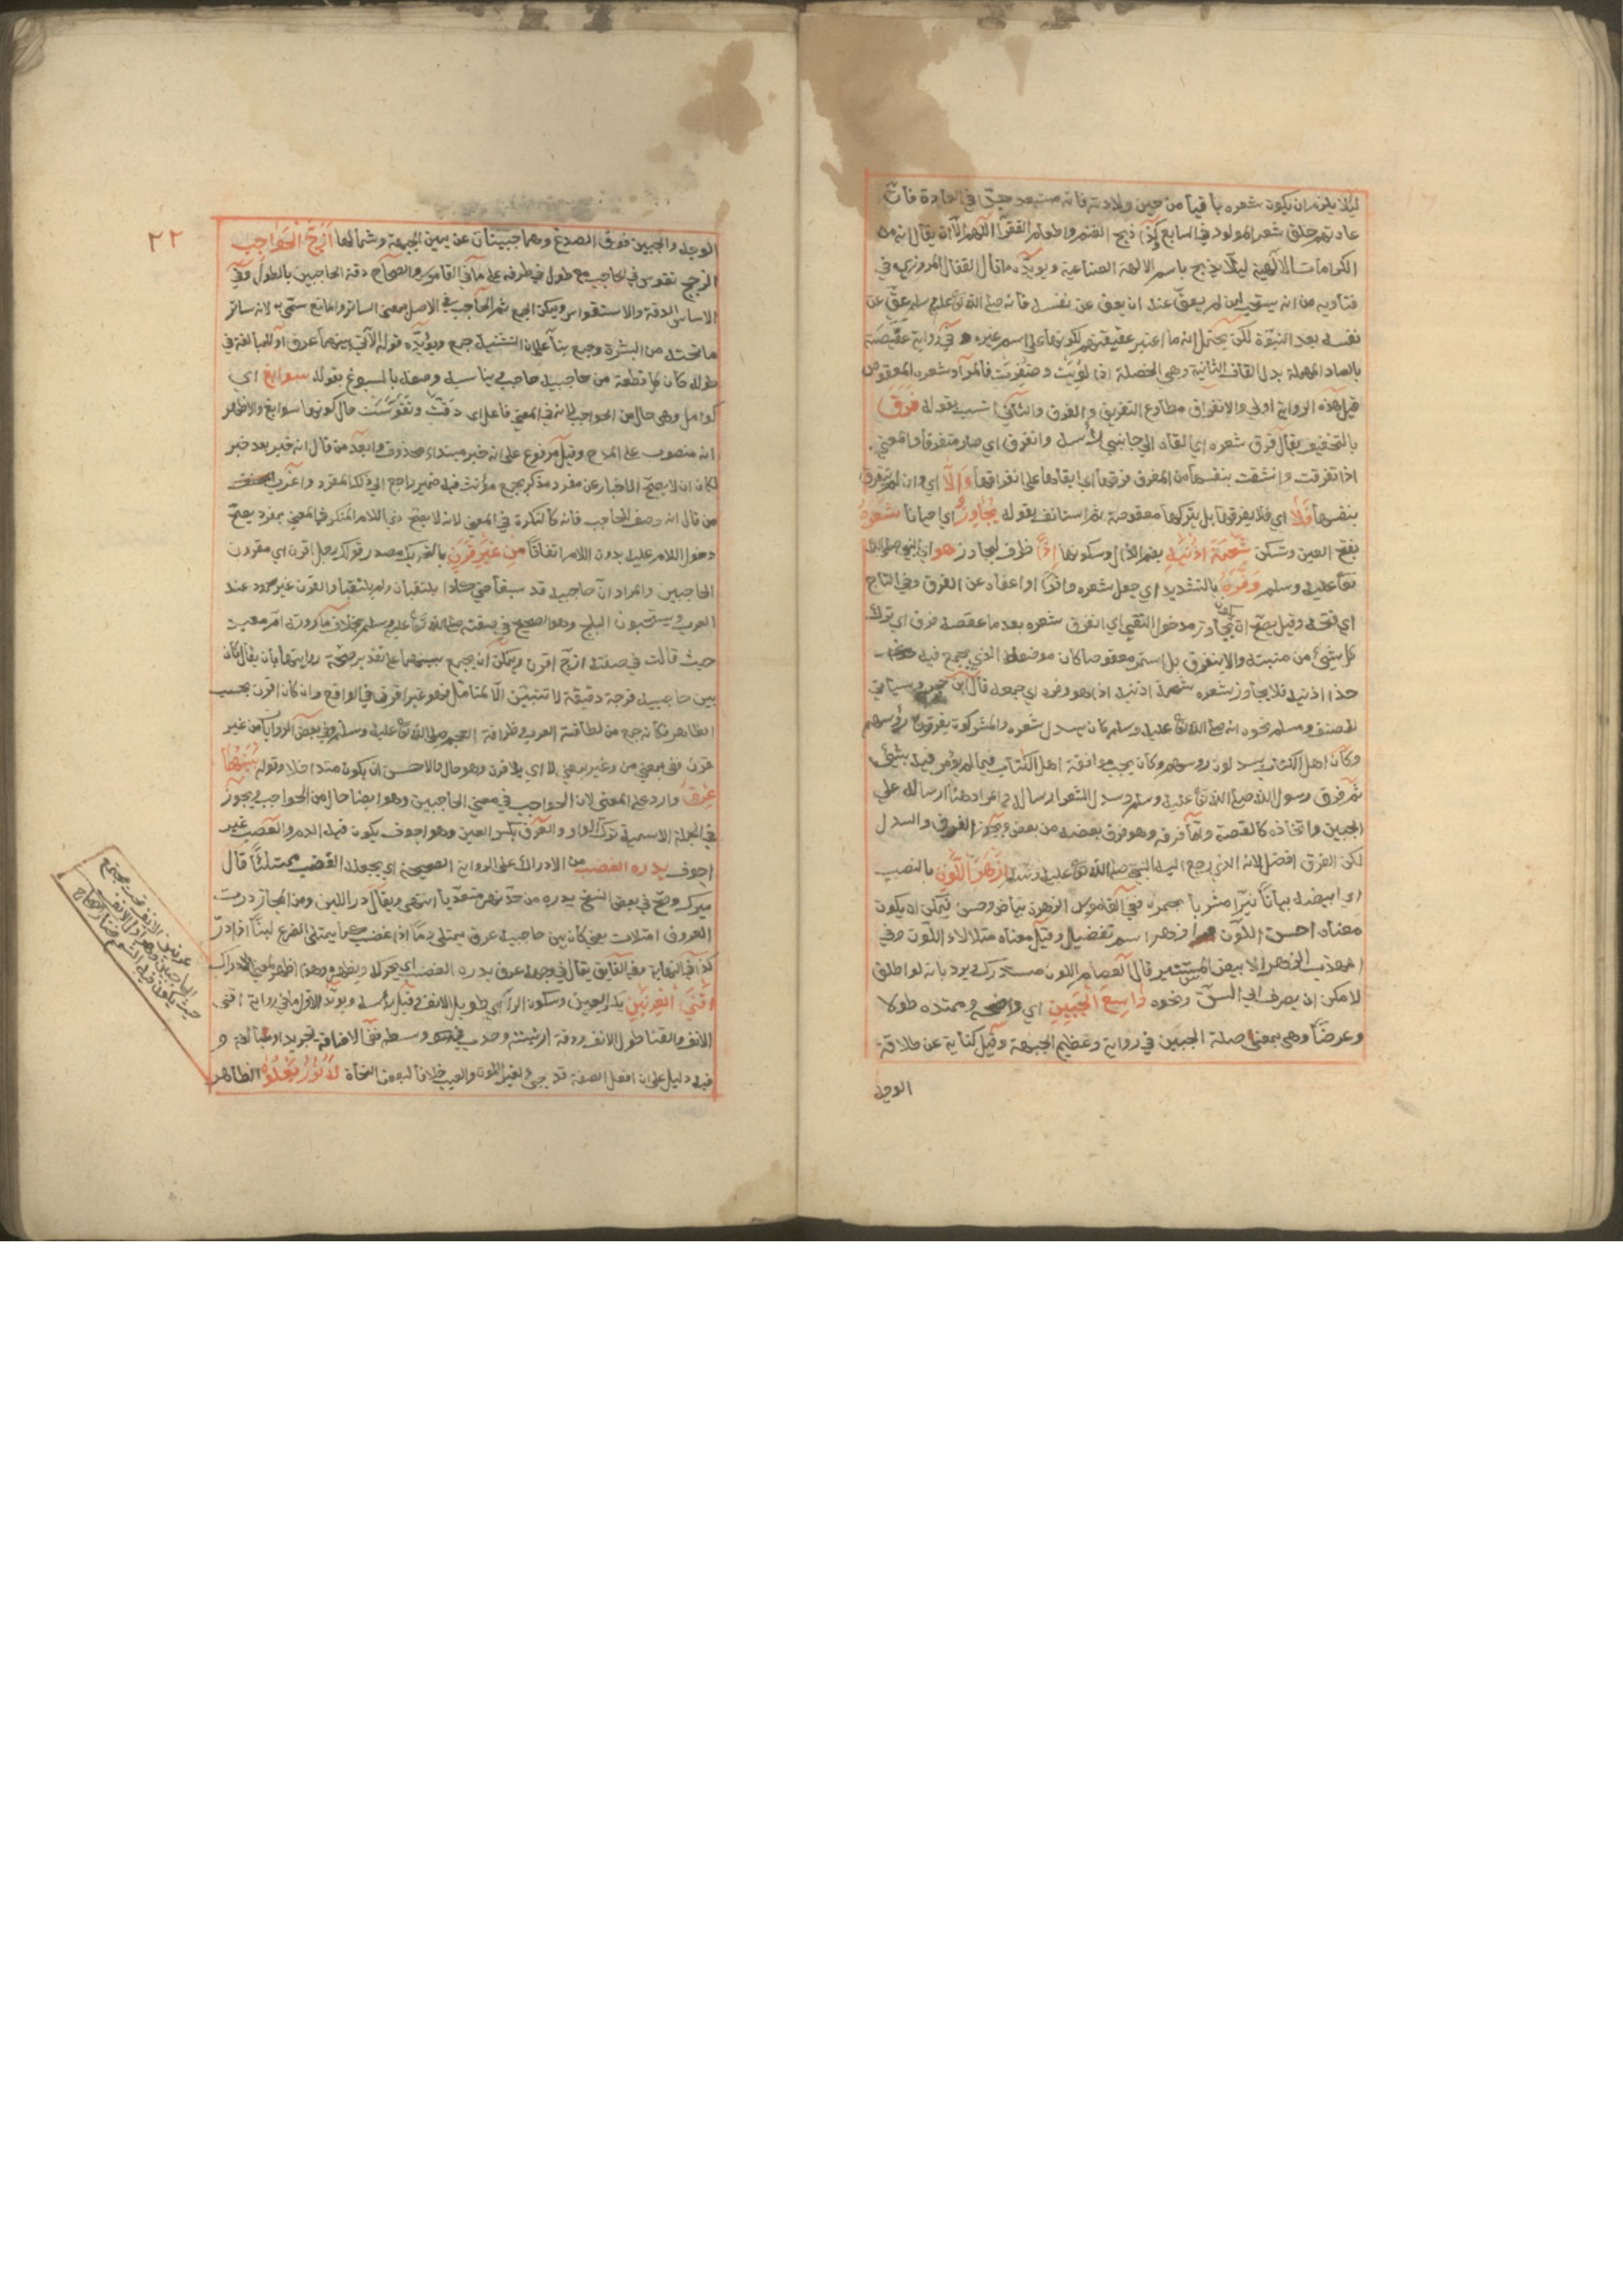 لئلا يلزم ان يكون شعره باقيا من حين ولادته فانه مستبعد جدّا في العادة فان
عادتهم حلق شعر المولود في السابع وكذا ذبح الغنم واطعام الفقرا اللّهم الّا ان يقال انه من
الكرامات الالهية ليلّا يذبح باسم الالهة الصناعية ويويّده ما قال القفال المروزي في
فتاويه من انه يستحب لمن لم يعقّ عنه ان يعق عن نفسه فانه صلى الله تعالى عليه وسلم عقّ عن
نفسه بعد النبوّة لكن يحتمل انه ما اعتبر عقيقتهم لكونها على اسم غيره وفي رواية عقيصته
بالصاد المهملة بدل القاف الثانية وهي الخصلة اذا لويت وضفرت فالمراد شعره المعقوص
قيل هذه الرواية اولى والانفراق مطاوع التفريق والفرق والثاني انسب بقوله فرق
بالتخفيف يقال فرق شعره اي القاه الي جانبي رأسه وانفرق اي صار متفرقا والمعني
اذا تفرقت وانشقت بنفسها من المفرق فرقها اي ابقاها على انفراقها والّا اي وان لم تنفرق
بنفسها فلا اي فلا يفرقها بل يتركها معقوصة ثم استانف بقوله يجاوز اي احيانا شعره
بفتح العين وتسكن شحمة اذنيه بضم الذال وسكونها اذا ظرف ليجاوز هو اي النبي صلى الله
تعالى عليه وسلم وفّره بالتشديد اي جعل شعره وافرًا او اعفاه عن الفرق وفي التاج
اي فتحه وقيل يصحّ ان يكون يجاوز مدخول النفي اي انفرق شعره بعد ما عقصه فرق اي ترك
كل شيئ من منبته والا ينفرق بل استمر معقوصا كان موضعه الذي يجمع فيه
حذا اذنيه فلا يجاوز شعره شحمة اذنيه اذا هو وفره اي جمعه قال ابن حجر وسياتي
للمصنف ومسلم نحوه انه صلى الله تعالى عليه وسلم كان يسدل شعره والمشركون يفرقون رؤسهم
وكان اهل الكتاب يسدلون رؤسهم وكان يحب موافقة اهل الكتاب فيما لم يؤمر فيه بشيئ
ثم فرق رسول الله صلى الله تعالى عليه وسلم وسدل الشعر ارساله والمراد هنا ارساله علي
الجبين واتخاذه كالقصة واما فرقه وهو فرق بعضه من بعض ويجوز الفرق والسدل
لكن الفرق افضل لانه الذي رجع اليه النبي صلى الله تعالى عليه وسلم ازهر اللون بالنصب
اي ابيضه بياناً نيّرا مشربا بحمرة ففي القاموس الزهرة بياض وحسن فيمكن ان يكون
معناه احسن اللّون وازهر اسم تفضيل وقيل معناه متلالاء اللّون وفي
المهذب الازهر الابيض المستنير قال العصام اللون مستدرك ويرد بانه لو اطلق
لامكن ان يصرف الي السن ونحوه واسع الجبين اي واضحه وممتده طولا
وعرضاً وهي بمعنى صلة الجبين في رواية وعظيم الجبهة وقيل كناية عن طلاقة
الوجه
٢٢
الوجه والجبين فوق الصدغ وهما جبينان عن يمين الجبهة وشمالها ازج الحواجب
الزجج تقوس في الحاجب مع طول في طرفه على ما في القاموس والصحاح دقة الحاجبين بالطول وفي
الاساس الدقة والاستقواس ويمكن الجمع ثم الحاجب في الاصل بمعنى الساتر والمانع سمّي به لانه ساتر
ما تحته من البشرة وجمع بناء على ان التثنية جمع ويؤيّده قوله الآتي بينهما عرق او للمبالغة في
طوله كان كل قطعة من حاجبيه حاجب ويناسبه وصفه بالسبوغ بقوله سوابغ اي
كوامل وهي حال من الحواجب لانه في المعنى فاعل اي دقّت وتقوّست حال كونها سوابغ والاظهر
انه منصوب على المدح وقيل مرفوع على انه خبر مبتداء محذوف وابعد من قال انه خبر بعد خبر
لكان ان لا يصحّ الاخبار عن مفرد مذكر بجمع مؤنث فيه ضمير راجع الي ذلك المفرد واغرب
من قال انه وصف للحاجب فانه كالنكرة في المعنى لانه لا يصح ذي اللام المنكر في المعني بمفرد يصحّ
دخول اللام عليه بدون اللام اتفاقا من غير قرن بالتحريك مصدر قولك رجل اقرن اي مقرون
الحاجبين والمراد انّ حاجبيه قد سبقا حتى كادا يلتقيان ولم يلتقيا والقرن غير محمود عند
العرب ويستحبون البلج وهو الصحيح في صفته صلى الله تعالى عليه وسلم بخلاف ما روته ام معبد
حيث قالت في صفته ازج اقرن ويمكن ان يجمع بينهما على تقدير صحة روايتها بان يقال كان
بين حاجبيه فرجة دقيقة لا تتبيّن الّا لمتامّل فهو غير اقرن في الواقع وان كان اقرن بحسب
الظاهر فكانه جمع من لطافة العرب وظرافة العجم صلى الله تعالى عليه وسلم وفي بعض الروايات من غير
قرن ففي بمعني من وغير بمعنى لا اي بلا قرن وهو حال والاحسن ان يكون متداخلا وقوله بينهما
عرق وارد على المعنى لان الحواجب في معني الحاجبين وهو ايضا حال من الحواجب ويجوز
في الجملة الاسمية ترك الواو والعرق بكسر العين وهو اجوف يكون فيه الدم والعصب غير
اجوف يدره الغضب من الادرار على الرواية الصحيحة اي يجعله الغضب ممتلئا قال
ميرك وصح في بعض النسخ يدره من حدّ نصر متعدّيا انتهى ويقال در اللبن ومن المجاز درت
العروق امتلات يعني كان بين حاجبيه عرق يمتلي دمًا اذا غضب كما يمتلي الضرع لبنًا اذا درّ
كذا في النهاية وفي الفايق يقال في وجهه عرق يدره الغضب اي يحركه ويظهره وهو اظهر بمعنى الادرار
اقنى العرنين بكسر العين وسكون الرا اي طويل الانف وقيل رأسه ويؤيّد الاول ما في رواية اقنى
الانف والقنا طول الانف ودقة ارنبته وحدب في وسطه ففي الاضافة تجريد او مبالغة و
فيه دليل على ان افعل الصفة قد يجيء لغير اللون والعيب خلافا لبعض النحاة له نور يعلوه الظاهر
عرنين الانف تحت مجتمع
الحاجبين وهو اول الانف
حيث يكون فيه الشم